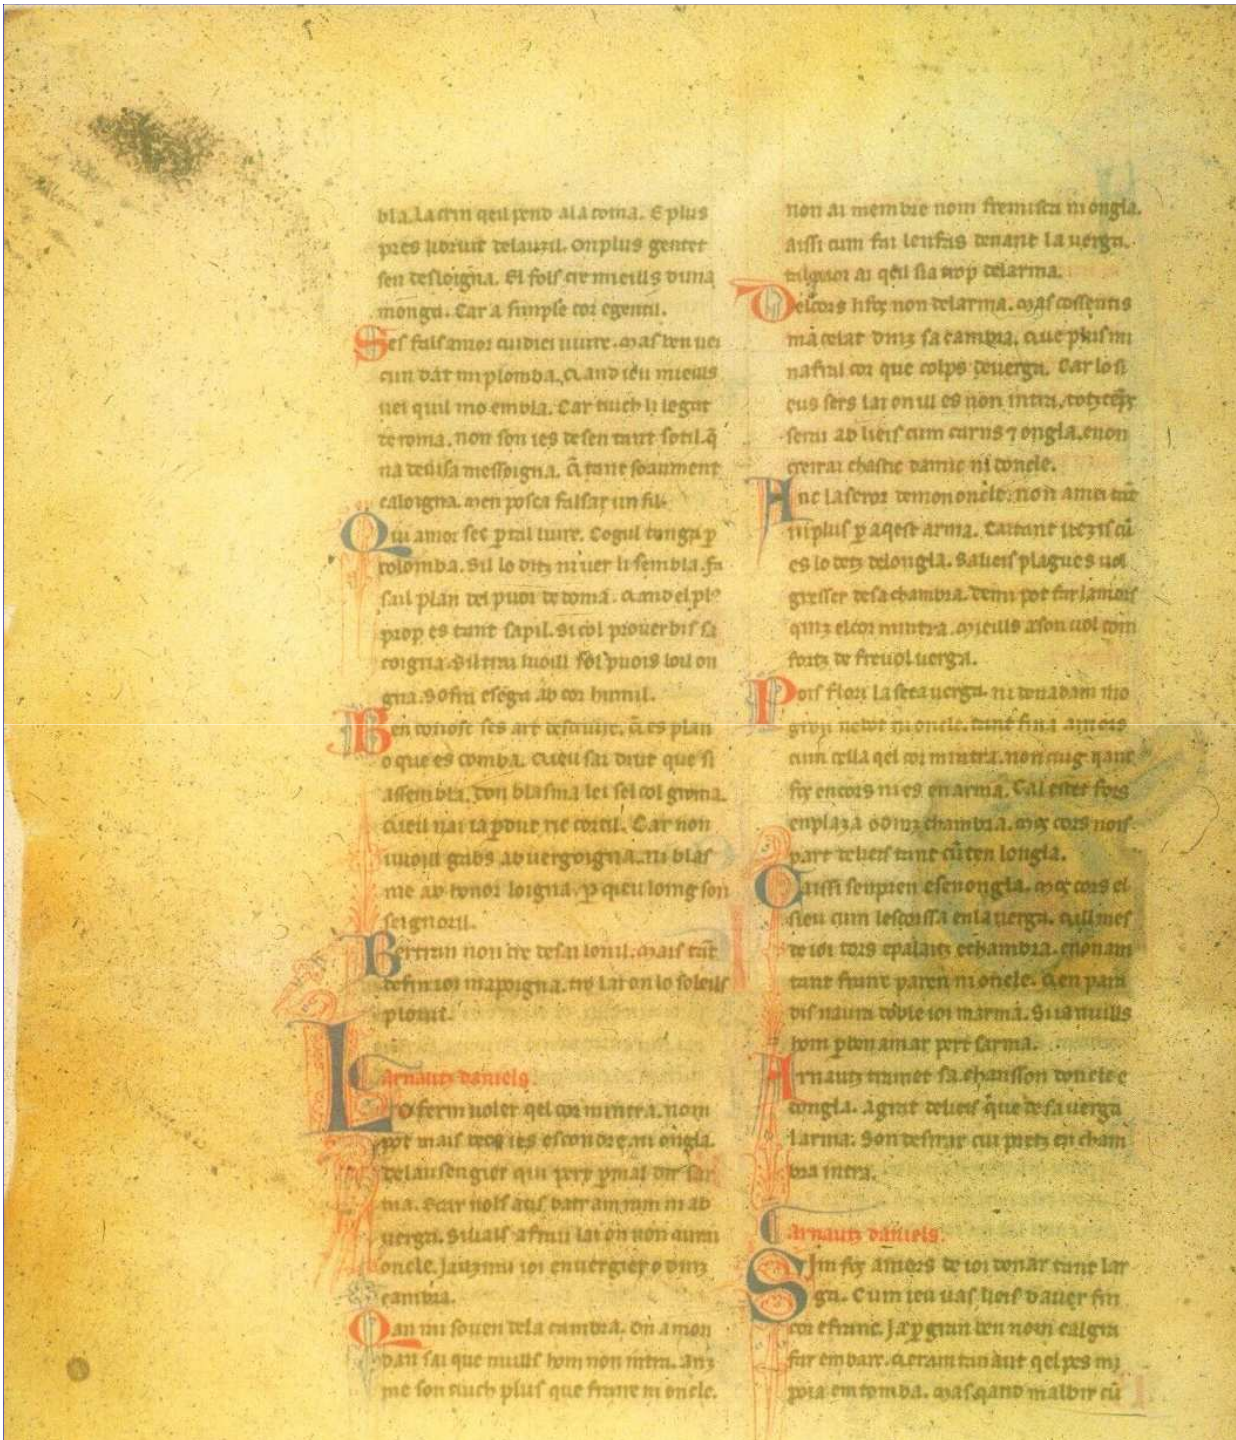 bla. La crin qeil pend ala coma. E plus
pres li
sen desloigna. El fols cre mieills duna
monga. Car a simple cor e gentil.
Ses fals amor cuidiei uiure. mas ben uei
cun dat mi plomba. Qand ieu mieills
uei quil mo embla. Car tuich li legat
de roma. non son ies de sen tant sotil. q̃
na deuisa messoigna. q̃ tant soaument
caloigna. men posca falsar un fil.
Qui amor sec ꝑ tal liure. Cogul tenga ꝑ
colomba. Sil lo ditz ni uer li sembla. fa
sail plan del puoi de doma. Qand el pl9
prop es tant sapil. Si col prouerbis sa
coigna. Sil trai luoill sol puois loil on
gna. Sofra e sega ab cor humil.
Ben conosc ses art descriure. q̃ es plan
o que es comba. Qieu sai drut que si
assembla. don blasma lei sel col groma.
Qieu nai ia ꝑdut ric cortil. Car non
uuoill gabs ab uergoigna. ni blas
me ab honor loigna. ꝑ qieu loing son
seignoril.
Bertran non cre de sai lo nil. mais tāt
de fin ioi mapoigna. tro lai on lo soleills
plouil.
arnautz daniels
Lo ferm uoler qel cor mintra. nom
pot mais becs ies escondre. ni ongla.
de lausengier qui pert ꝑ mal dir sar
ma. E car nols aus batr am ram ni ab
uerga. Siuals a frau lai on non aurai
oncle. Jauzirai ioi en uergier o dinz
cambra.
Qan mi souen de la cambra. On a mon
dan sai que nuills hom non intra. anz
me son tuich plus que fraire ni oncle.
non ai membre nom fremisca ni ongla.
aissi cum fai lenfas denant la uerga.
tal paor ai qeil sia prop de larma.
Del cors li fos non de larma. mas cossentis
ma celar dinz sa cambra. Que plus mi
nafral cor que colps de uerga. Car lo si
eus sers lai on ill es non intra.
serai ab lieis cum carns ⁊ ongla. e non
creirai chastic damic ni doncle.
Anc la seror de mon oncle. non amei tāt
ni plus ꝑ aqest arma. Caitant uezis cū
es lo detz de longla. Sa lieis plagues uol
gresser de sa chambra. De mi pot far lamors
qinz el cor mintra. mieills a son uol com
fortz de freuol uerga.
Pois flori la seca uerga. ni den adam mo
gron nebot ni oncle. tant fina amors
cum cella qel cor mintra. non cuig qanc
fos en cors ni es en arma. Cal estei fors
en plaza o dinz chambra. mos cors nois
part de lieis tant cū ten longla.
Caissi senpren e senongla. mos cors el
sieu cum lescorssa en la uerga. Qill mes
de ioi tors e palaitz e chambra. e non am
tant fraire paren ni oncle. Qen para
dis naura doble ioi marma. Si ia nuills
hom ꝑ ben amar pert sarma.
Arnautz tramet sa chansson doncle e
dongla. a grat de lieis que de sa uerga
larma. Son desirat cui pretz en cham
bra intra.
arnautz daniels.
Sim fos amors de ioi donar tant lar
ga. Cum ieu uas lieis dauer fin
cor e franc. Ja ꝑ gran ben nom calgra
far embarc. Qeram tan aut qel pes mi
poia em tomba. mas qand malbir cū